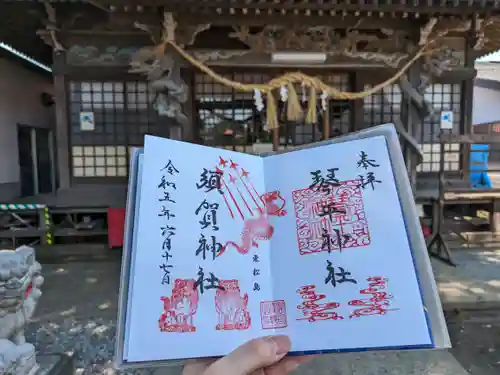 奉拝
琴平神社
須賀神社
東松島
令和五年六月十七日